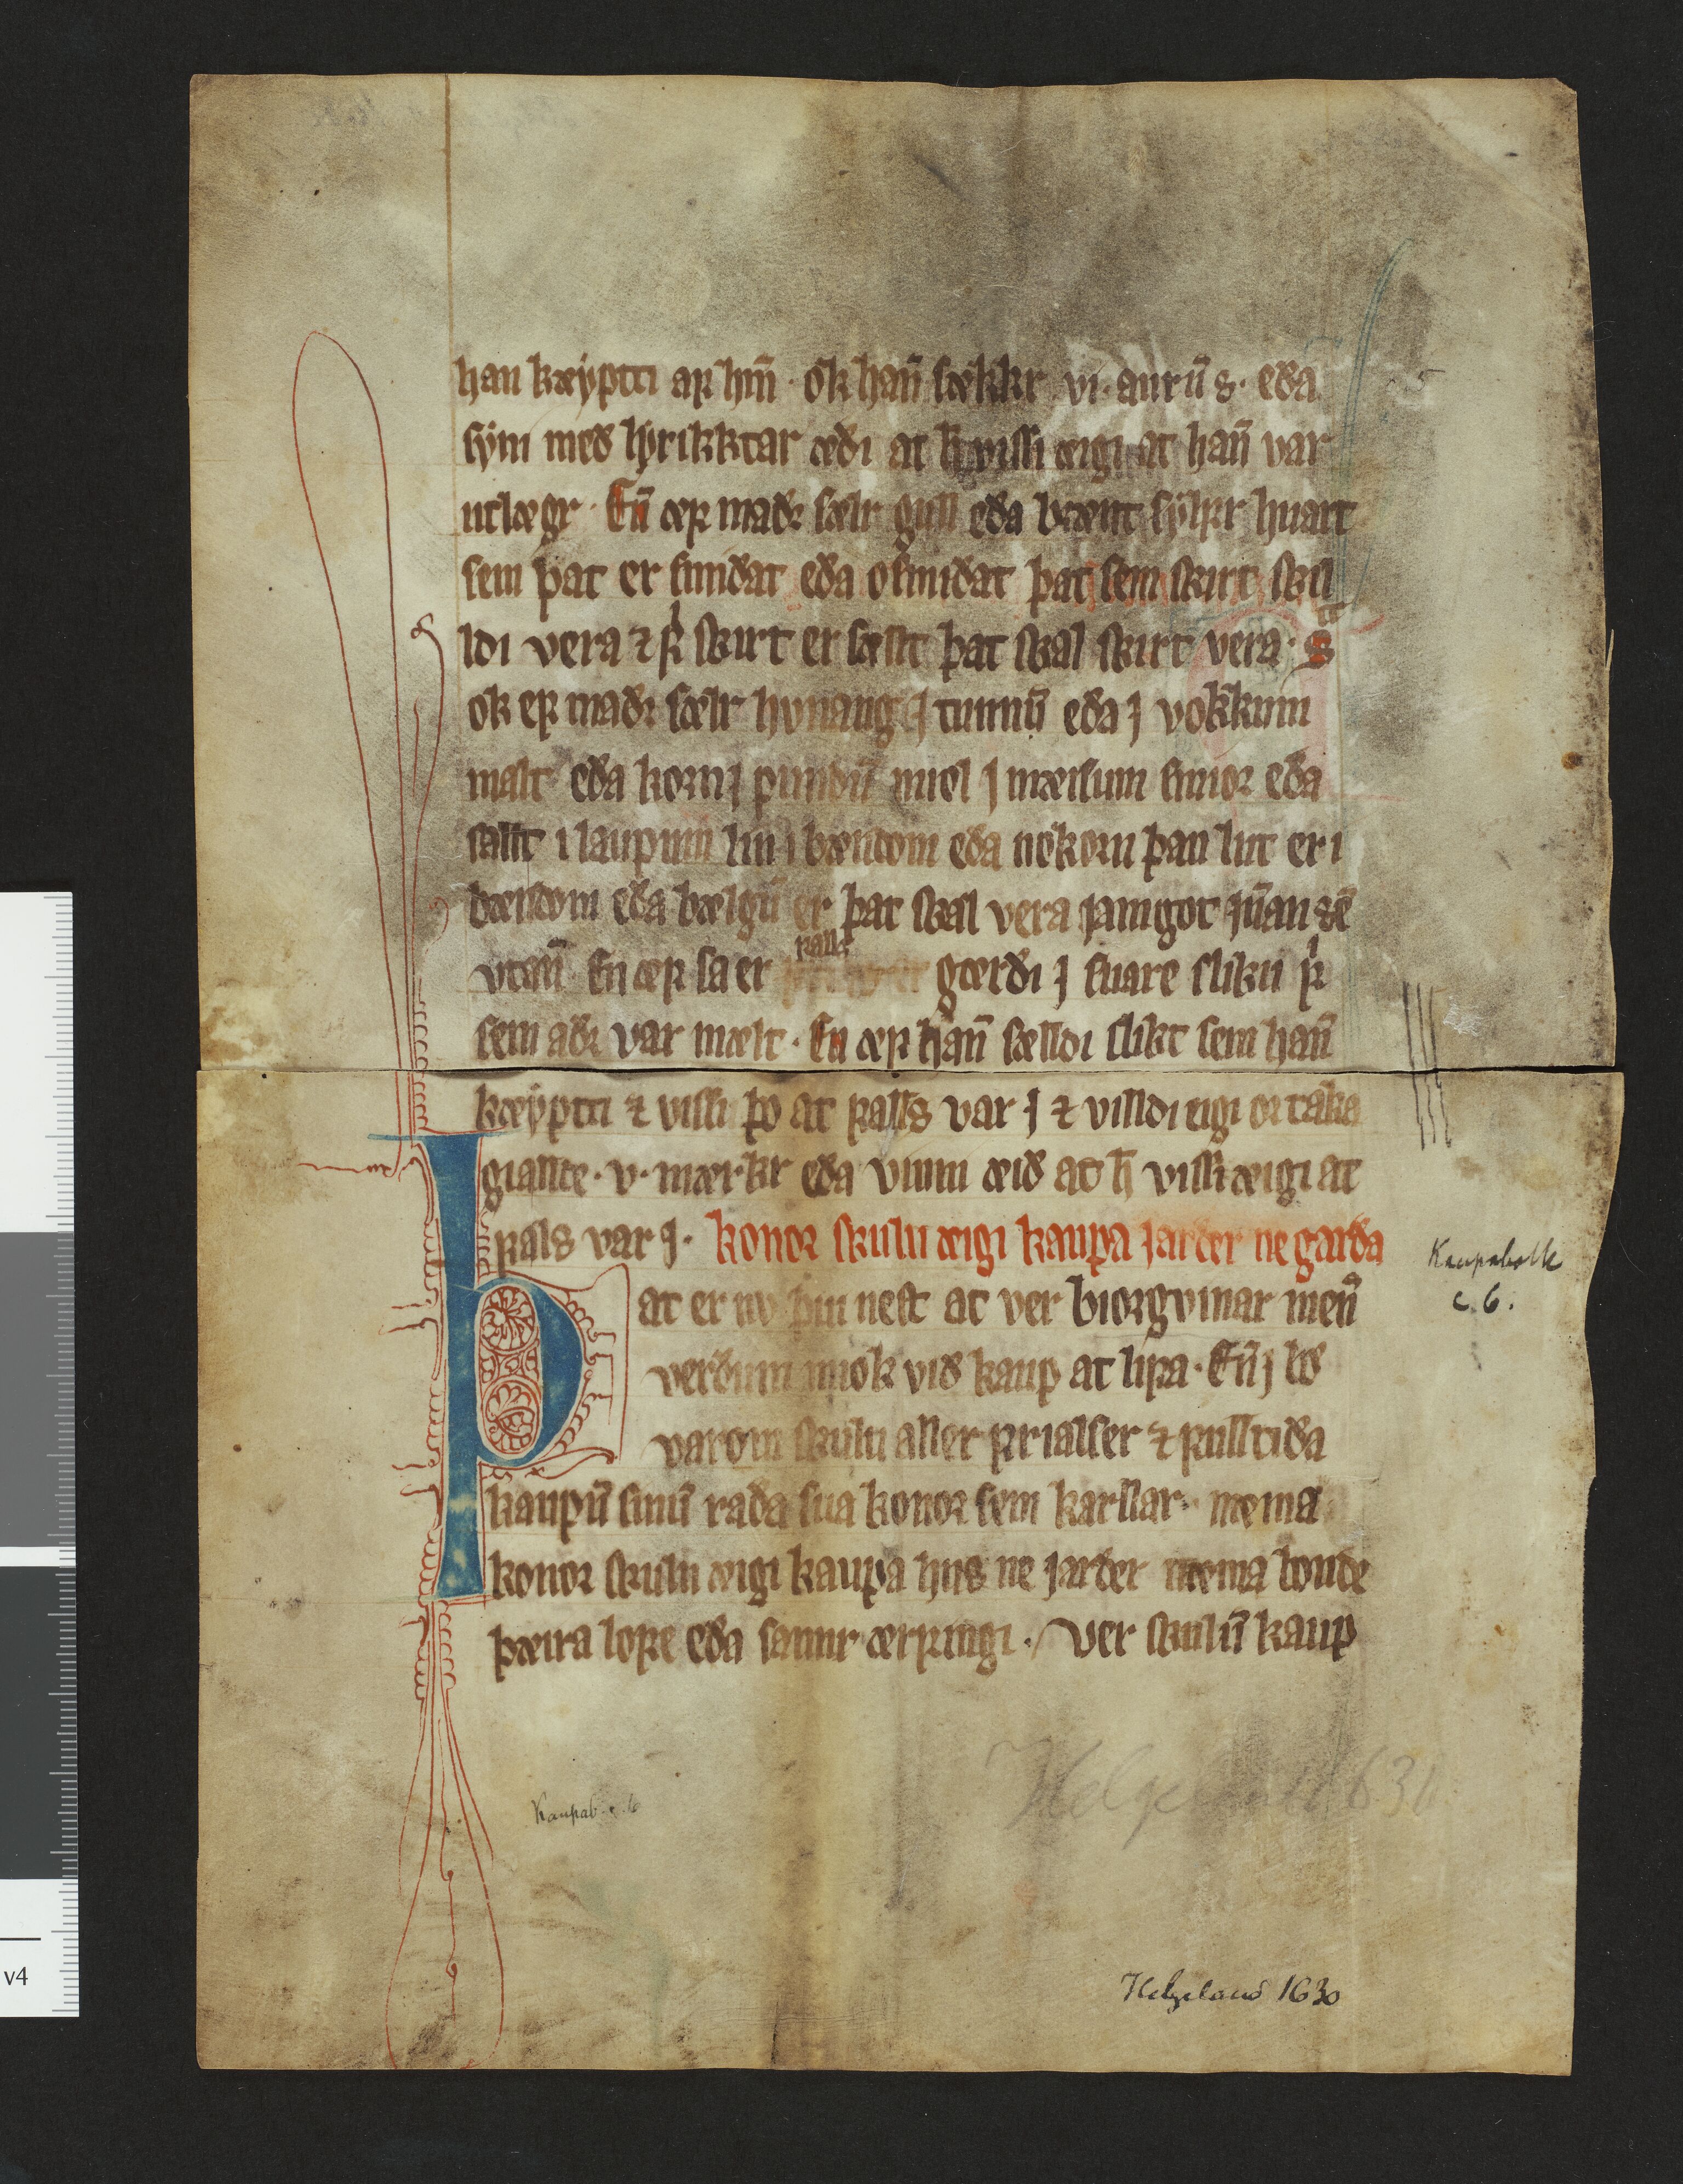 han kæyptti af hm̅ · ok han̅ sækkr vi · aurū s · eða
syni með lyrikktar æiði at h̅ vissi æigi at han̅ var
utlægr · En̅ æf maðr sælr gull eða brænt sylfr huart
sem þat er smiðat eða osmiðat þat sem skirt skil
ldi vera ⁊ f skirt er sællt þat skal skirt vera · s
ok ef maðr sælr hvnang j tunnū eða j vokkum
malt eða korn j pundū miol j mæisum smior eða
sallt i laupum lin i bændom eða nokorn þan lut er i
bændom eða bælgū er þat skal vera jamgot jn̅an sē
vtan̅ En æf sa er falls gærði j suare sliku f
sem aðr var mælt · En æf han̅ sælldi slikt sem han̅
kæyptti ⁊ vissi þo at falls var j ⁊ villdi eigi or taka
giallte · v · mærkr eða vinni æið at h̅ vissi æigi at
fals var j · konor skulu æigi kaupa jarðer ne garða
Þat er nv þui nest at ver biorgvinar men̅
verðum miok við kaup at lifa · En̅ j bø
varom skulu aller frialser ⁊ fulltiða
kaupū sinū raða sua konor sem karllar · mema
konor skulu æigi kaupa hus ne jarðer næma bonde
þæira lofe eða sannr ærfingi · Ver skulū kaup
Kaupabolk
c. 6.
Kaupab. c. 6
Helgeland 1630
Helgeland 1630